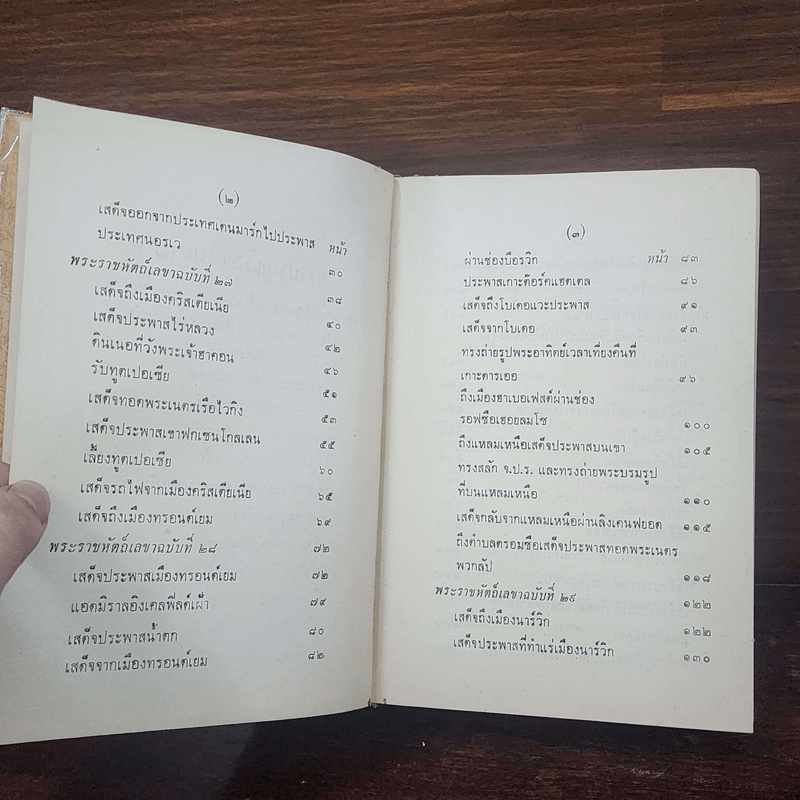 (๒)
เสด็จออกจากประเทศเดนมาร์กไปประพาส หน้า
ประเทศนอรเว ๓๐
พระราชหัตถ์เลขาฉบับที่ ๒๗ ๓๘
เสด็จถึงเมืองคริสเตียเนีย ๔๐
เสด็จประพาสไร่หลวง ๔๒
ดินเนอที่วังพระเจ้าฮาคอน ๔๖
รับทูตเปอเซีย ๕๑
เสด็จทอดพระเนตรเรือไวกิง ๕๓
เสด็จประพาสเขาฟกเซนโกลเลน ๕๕
เลี้ยงทูตเปอเซีย ๖๐
เสด็จรถไฟจากเมืองคริสเตียเนีย ๖๕
เสด็จถึงเมืองทรอนด์เยม ๖๙
พระราชหัตถ์เลขาฉบับที่ ๒๘ ๗๒
เสด็จประพาสเมืองทรอนด์เยม ๗๒
แอดมิราลอิงเคลฟีลด์เฝ้า ๗๙
เสด็จประพาสน้ำตก ๘๐
เสด็จจากเมืองทรอนด์เยม ๘๒
(๓)
ผ่านช่องบือรวิก หน้า ๘๓
ประพาสเกาะต๊อร์คแฮตเตล ๘๖
เสด็จถึงโบเดอแวะประพาส ๙๑
เสด็จจากโบเดอ ๙๓
ทรงถ่ายรูปพระอาทิตย์เวลาเที่ยงคืนที่
เกาะคารเออ ๙๖
ถึงเมืองฮาเบอเฟสต์ผ่านช่อง
รอฟซือเฮอยลมโซ ๑๐๐
ถึงแหลมเหนือเสด็จประพาสบนเขา ๑๐๕
ทรงสลัก จ.ป.ร. และทรงถ่ายพระบรมรูป
ที่บนแหลมเหนือ ๑๑๐
เสด็จกลับจากแหลมเหนือผ่านลิงเคนฟยอด ๑๑๕
ถึงตำบลตรอมซือเสด็จประพาสทอดพระเนตร
พวกลัป ๑๑๘
พระราชหัตถ์เลขาฉบับที่ ๒๙ ๑๒๒
เสด็จถึงเมืองนาร์วิก ๑๒๒
เสด็จประพาสที่ทำแร่เมืองนาร์วิก ๑๓๐